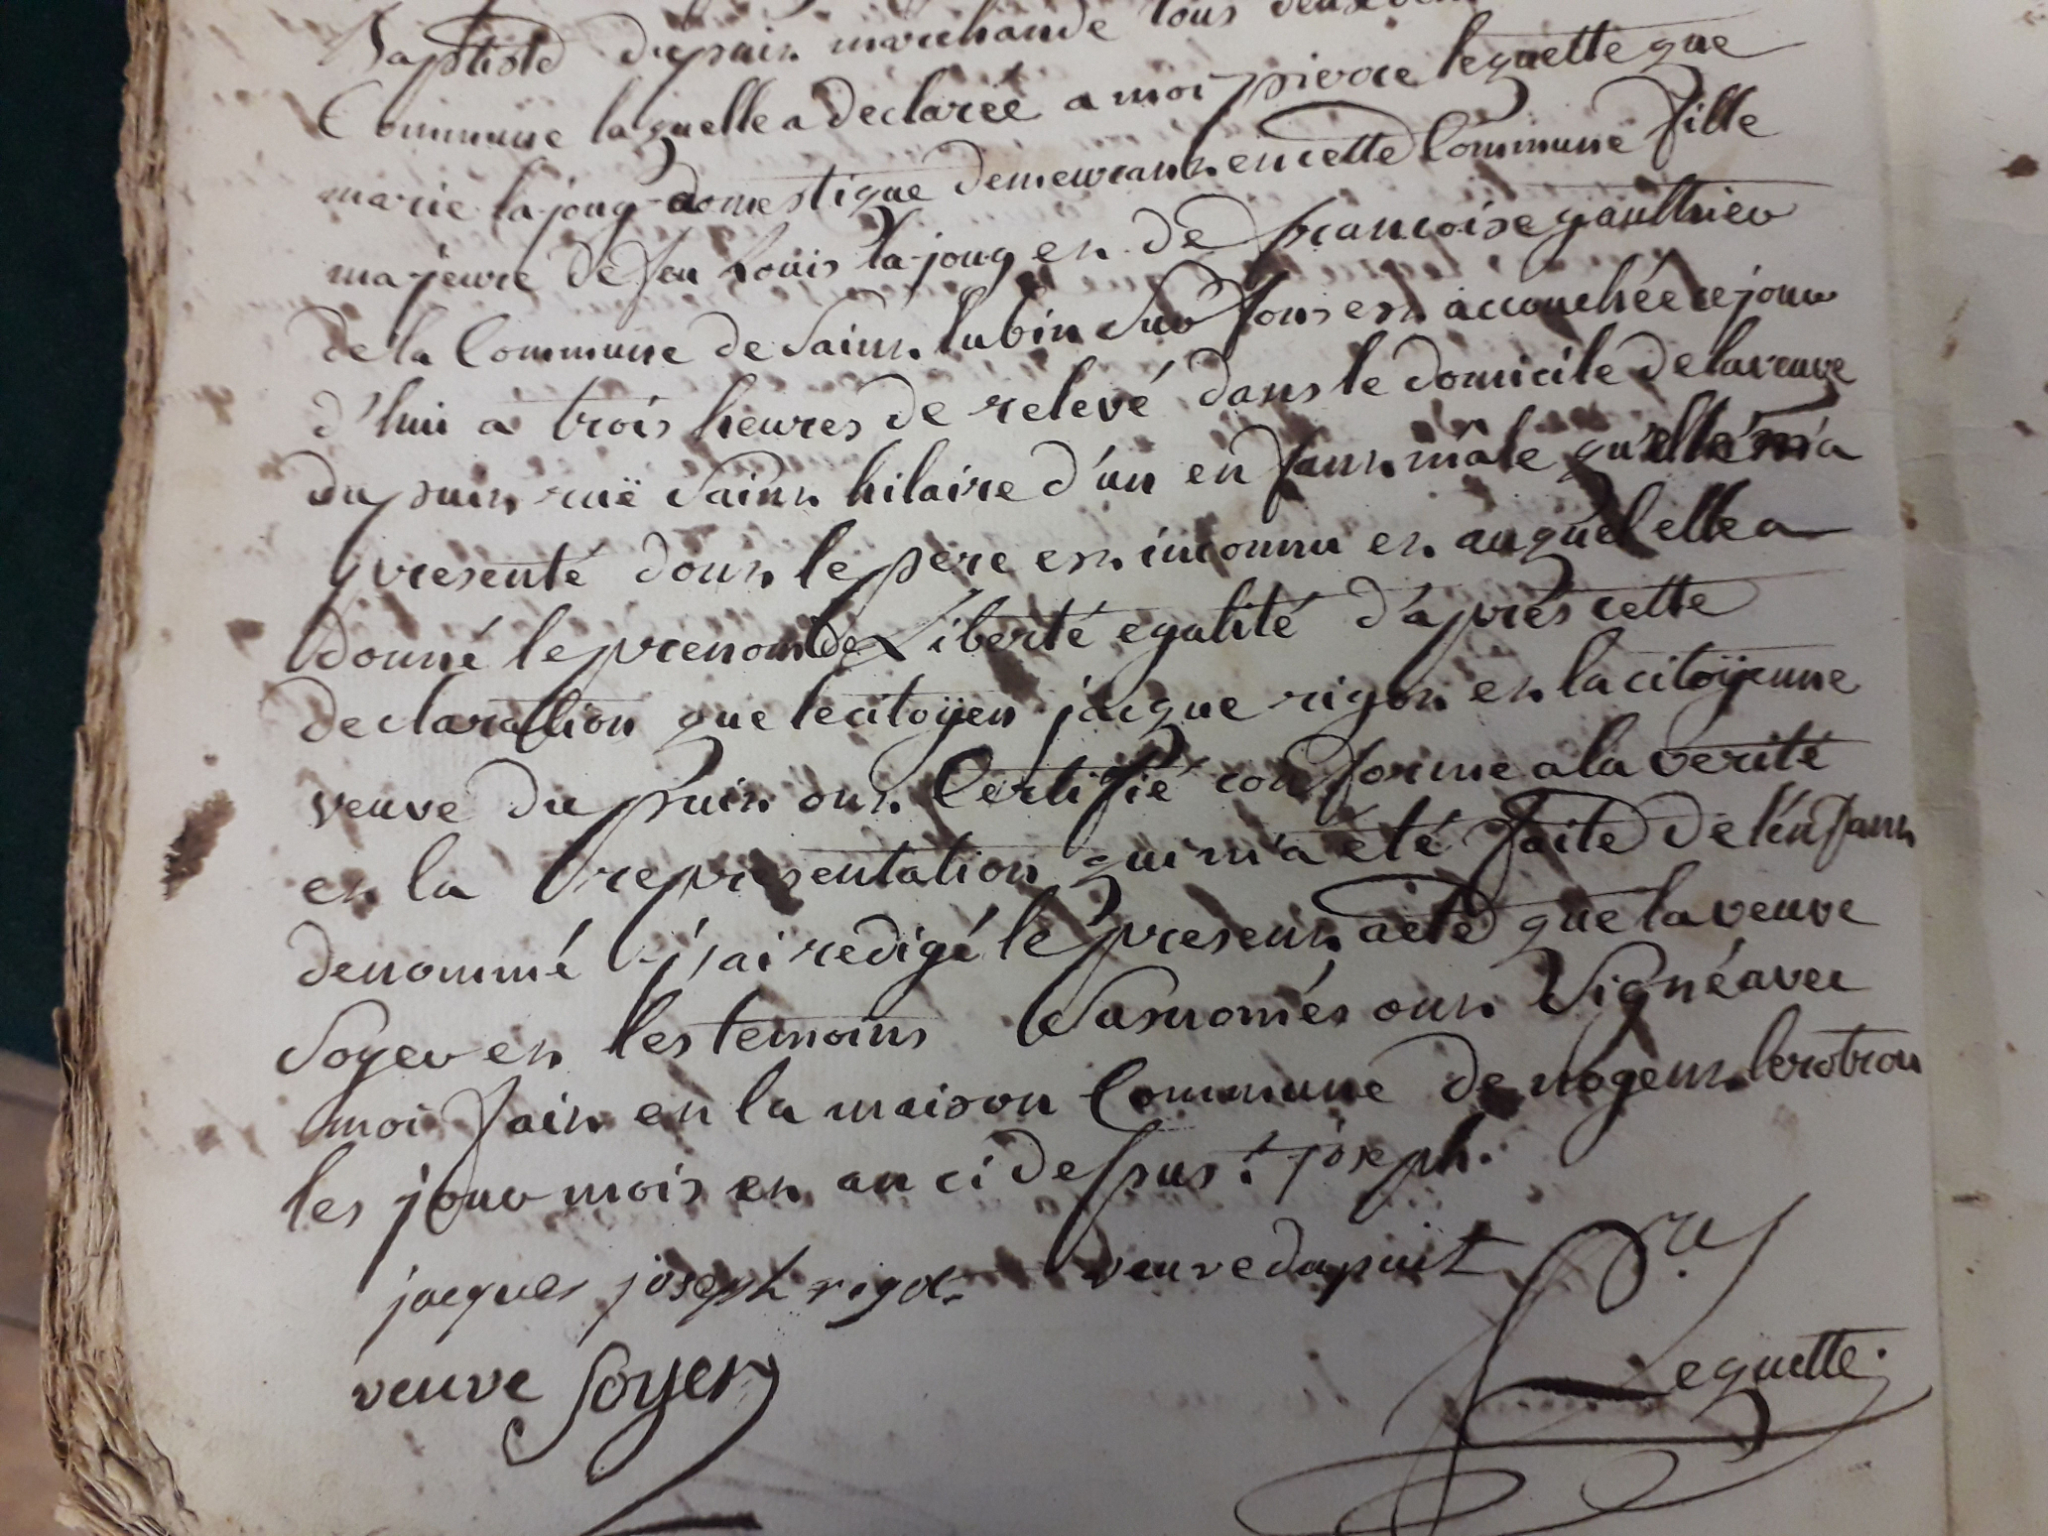 Baptiste dupuin marchande tous deux
Commune laquelle a declareé a moi pierre lequette que
marie la-joug domestique demeurant en cette Commune fille
majeure de feu Louis la-joug et de francoise gaulthier
de la Commune de Saint lubin Sur fons est accouchée ce jour
d'hui a trois heures de relevé dans le domicile de la veuve
du puin ruë Saint hilaire d'un enfant mâle qu'elle m'a
presenté dont le pere est inconnu et auquel elle a
donné le prenom de Liberté egalité d'aprés cette
declaration que le citoÿen jacque rigot et la citoÿenne
veuve du puin ont Certifié conforme a la verité
et la representation qui m'a été faite de l'enfant
denommé j'ai redigé le present acte que la veuve
Soyer et les temoins Susnomés ont Signé avec
moi fait en la maison Commune de nogent lerotrou
les jour mois et an ci dessus : joseph.
jacques joseph rigot veuve dupuit
veuve Soyer
Lequette.